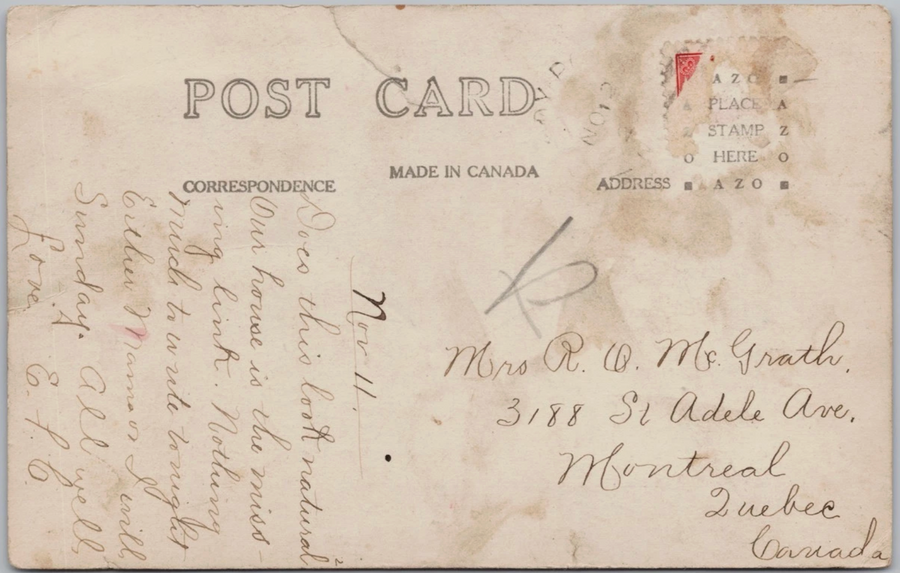 POST CARD
MADE IN CANADA
CORRESPONDENCE
ADDRESS
AZO
PLACE
STAMP
HERE
AZO
AZO
AZO
NO 13
Nov 11.
Does this look natural?
Our house is the miss-
ing link. Nothing
much to write tonight
Either Mama or I will,
Sunday. All well,
Love.
E. F. C.
Mrs R. O. McGrath.
3188 St Adele Ave.
Montreal
Quebec
Canada